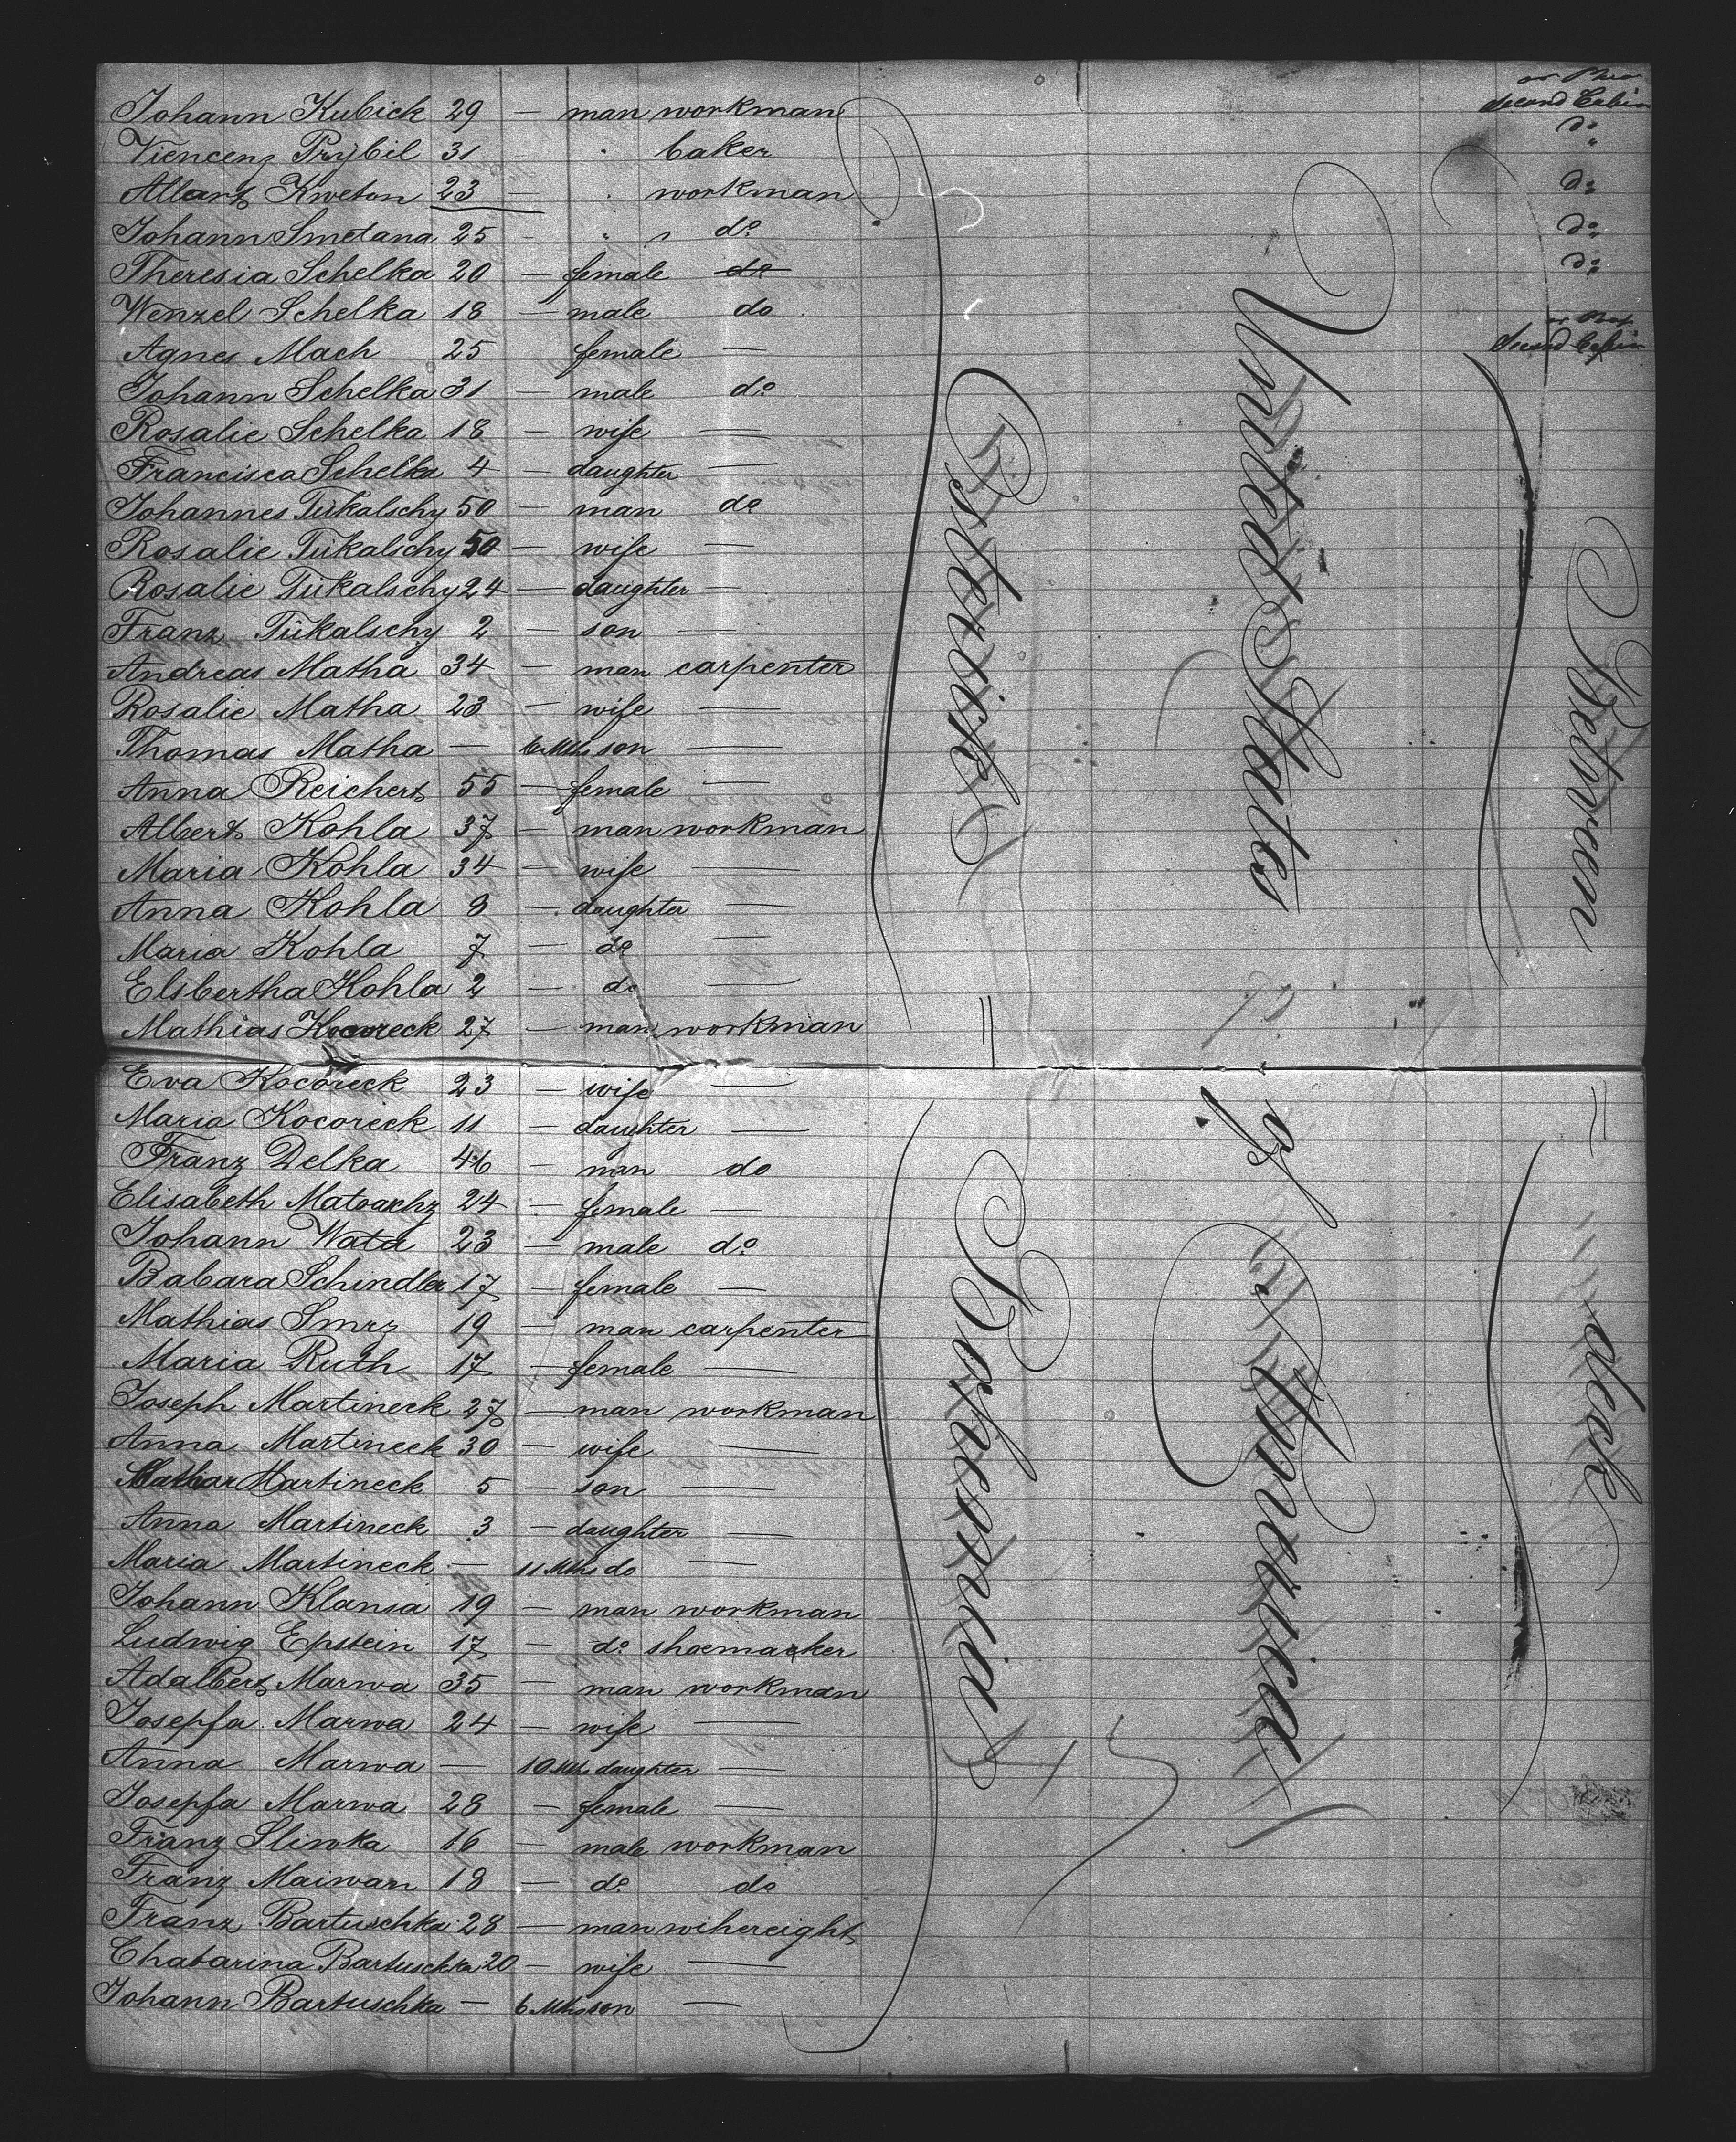 Johann Kubick 29 — man workman
Viencenz Prybil 31 " baker
Allart Kweton 23 — " workman
Johann Smetana 25 - " " do
Theresia Schelka 20 — female do
Wenzel Schelka 18 — male do
Agnes Mach 25 female —
Johann Schelka 31 — male do
Rosalie Schelka 18 — wife —
Francisca Schelka 4 — daughter —
Johannes Tükalschy 50 — man do
Rosalie Tükalschy 50 — wife —
Rosalie Tükalschy 24 — daughter —
Franz Tükalschy 2 — son —
Andreas Matha 34 — man carpenter
Rosalie Matha 23 — wife —
Thomas Matha — 6 Mths son —
Anna Reichert 55 — female —
Albert Kohla 37 — man workman
Maria Kohla 34 — wife —
Anna Kohla 8 — daughter —
Maria Kohla 7 — do —
Elsbertha Kohla 2 — do —
Mathias Kocoreck 27 — man workman
Eva Kocoreck 23 — wife —
Maria Kocoreck 11 — daughter —
Franz Delka 46 — man do
Elisabeth 24 — female —
Johann Wata 23 — male do
Babara Schindler 17 — female —
Mathias Smrz 19 — man carpenter
Maria Ruth 17 — female —
Joseph Martineck 27 — man workman
Anna Martineck 30 — wife —
Martineck 5 — son —
Anna Martineck 3 — daughter —
Maria Martineck — 11 Mths do —
Johann Klansa 19 — man workman
Ludwig Epstein 17 — do shoemacker
Adalbert Marwa 35 — man workman
Josepfa Marwa 24 — wife —
Anna Marwa — 10 Mths daughter —
Josepfa Marwa 28 — female —
Franz Slinka 16 — male workman
Franz Maiwarn 18 — do do
Franz Bartuschka 28 — man wihereight
Chatarina Bartuschka 20 — wife —
Johann Bartuschka — 6 Mths son —
Osterreich =
Bohemia
United States
of America
Second Cabin
do
do
do
do
Second Cabin
Between =
deck